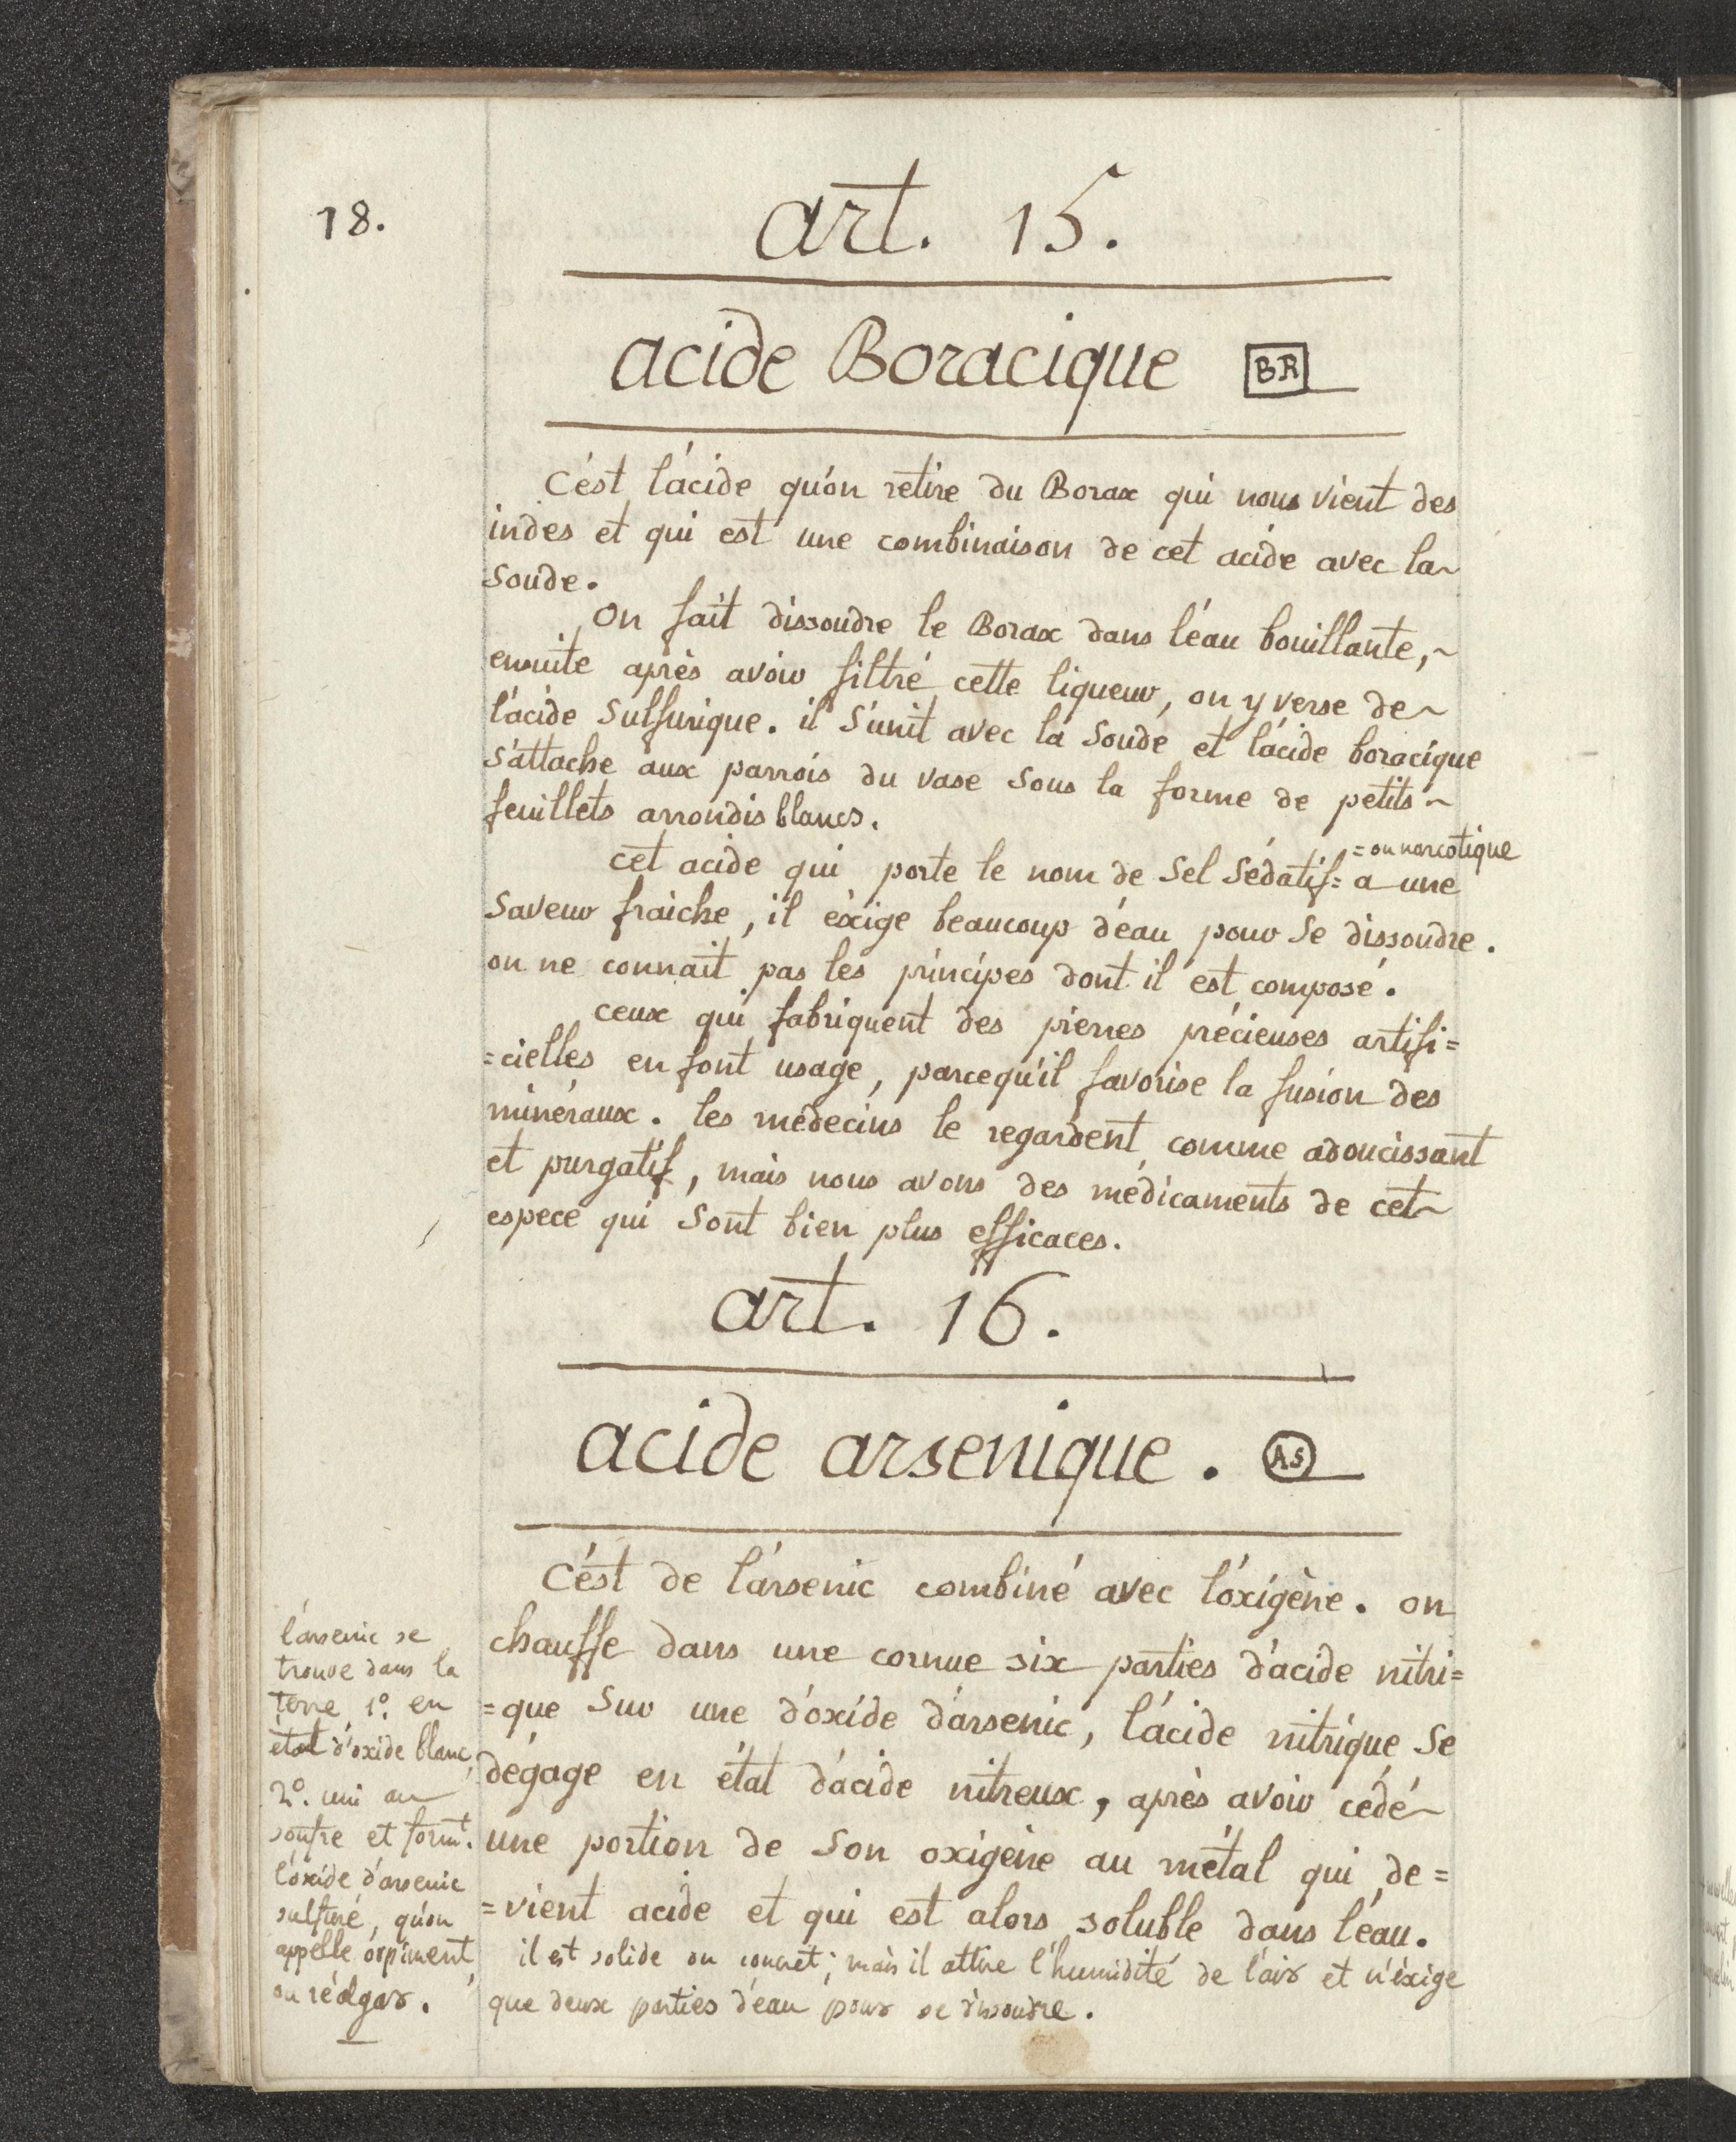 18.
art. 15.
acide Boracique BR
C'ést l'acide qu'on retire du Borax qui nous vient des
indes et qui est une combinaison de cet acide avec la
Soude.
On fait dissoudre le Borax dans l'éau bouillante,
ensuite après avoir filtré cette liqueur, on y verse de
l'acide Sulfurique. il S'unit avec la Soude et l'acide boracique
S'attache aux parrois du vase Sous la forme de petits
feuillets arrondis blancs.
=ou narcotique
cet acide qui porte le nom de Sel Sédatif= a une
Saveur fraiche, il éxige beaucoup d'éau pour Se dissoudre.
on ne connait pas les principes dont il est composé.
ceux qui fabriquent des pierres précieuses artifi=
=cielles en font usage, parcequ'il favorise la fusion des
minéraux. les médecins le regardent comme adoucissant
et purgatif, mais nous avons des médicaments de cet
espece qui Sont bien plus efficaces.
art. 16.
acide arsenique. AS
C'ést de l'arsenic combiné avec l'oxigène. on
chauffe dans une cornue six parties d'acide nitri=
=que Sur une d'oxide d'arsenic, l'acide nitrique Se
dégage en état d'acide nitreux, après avoir cédé
une portion de Son oxigène au métal qui de=
=vient acide et qui est alors soluble dans l'éau.
il est solide ou concret; mais il attire l'humidité de l'air et n'éxige
que deux parties d'éau pour se dissoudre.
l'arsenic se
trouve dans la
terre 1º. en
état d'oxide blanc,
2º. uni au
soufre et formt.
l'oxide d'arsenic
sulfuré, qu'on
appelle orpiment,
ou réalgar.